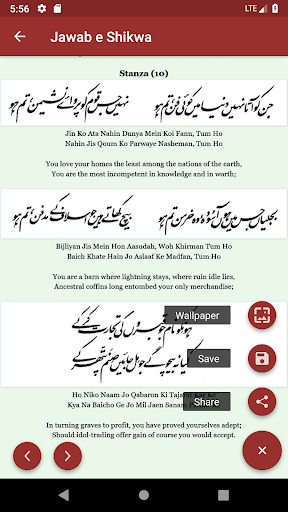 5:56
LTE
Jawab e Shikwa
Stanza (10)
جن کو آتا نہیں دنیا میں کوئی فن، تم ہو
نہیں جس قوم کو پروائے نشیمن، تم ہو
Jin Ko Ata Nahin Dunya Mein Koi Fann, Tum Ho
Nahin Jis Qoum Ko Parwaye Nasheman, Tum Ho
You love your homes the least among the nations of the earth,
You are the most incompetent in knowledge and in worth;
بجلیاں جس میں ہوں آسودہ وہ خرمن تم ہو
بیچ کھاتے ہیں جو اسلاف کے مدفن تم ہو
Bijliyan Jis Mein Hon Aasudah, Woh Khirman Tum Ho
Baich Khate Hain Jo Aslaaf Ke Madfan, Tum Ho
You are a barn where lightning stays, where ruin idle lies,
Ancestral coffins long entombed your only merchandise;
ہو نکو نام جو قبروں کی تجارت کر کے
Wallpaper
کیا نہ بیچو گے جو مل جائیں صنم پتھر کے
Save
Ho Niko Naam Jo Qabaron Ki Tajarat Kar Ke
Share
Kya Na Baicho Ge Jo Mil Jaen Sanam
In turning graves to profit, you have proved yourselves adept;
Should idol-trading offer gain of course you would accept.